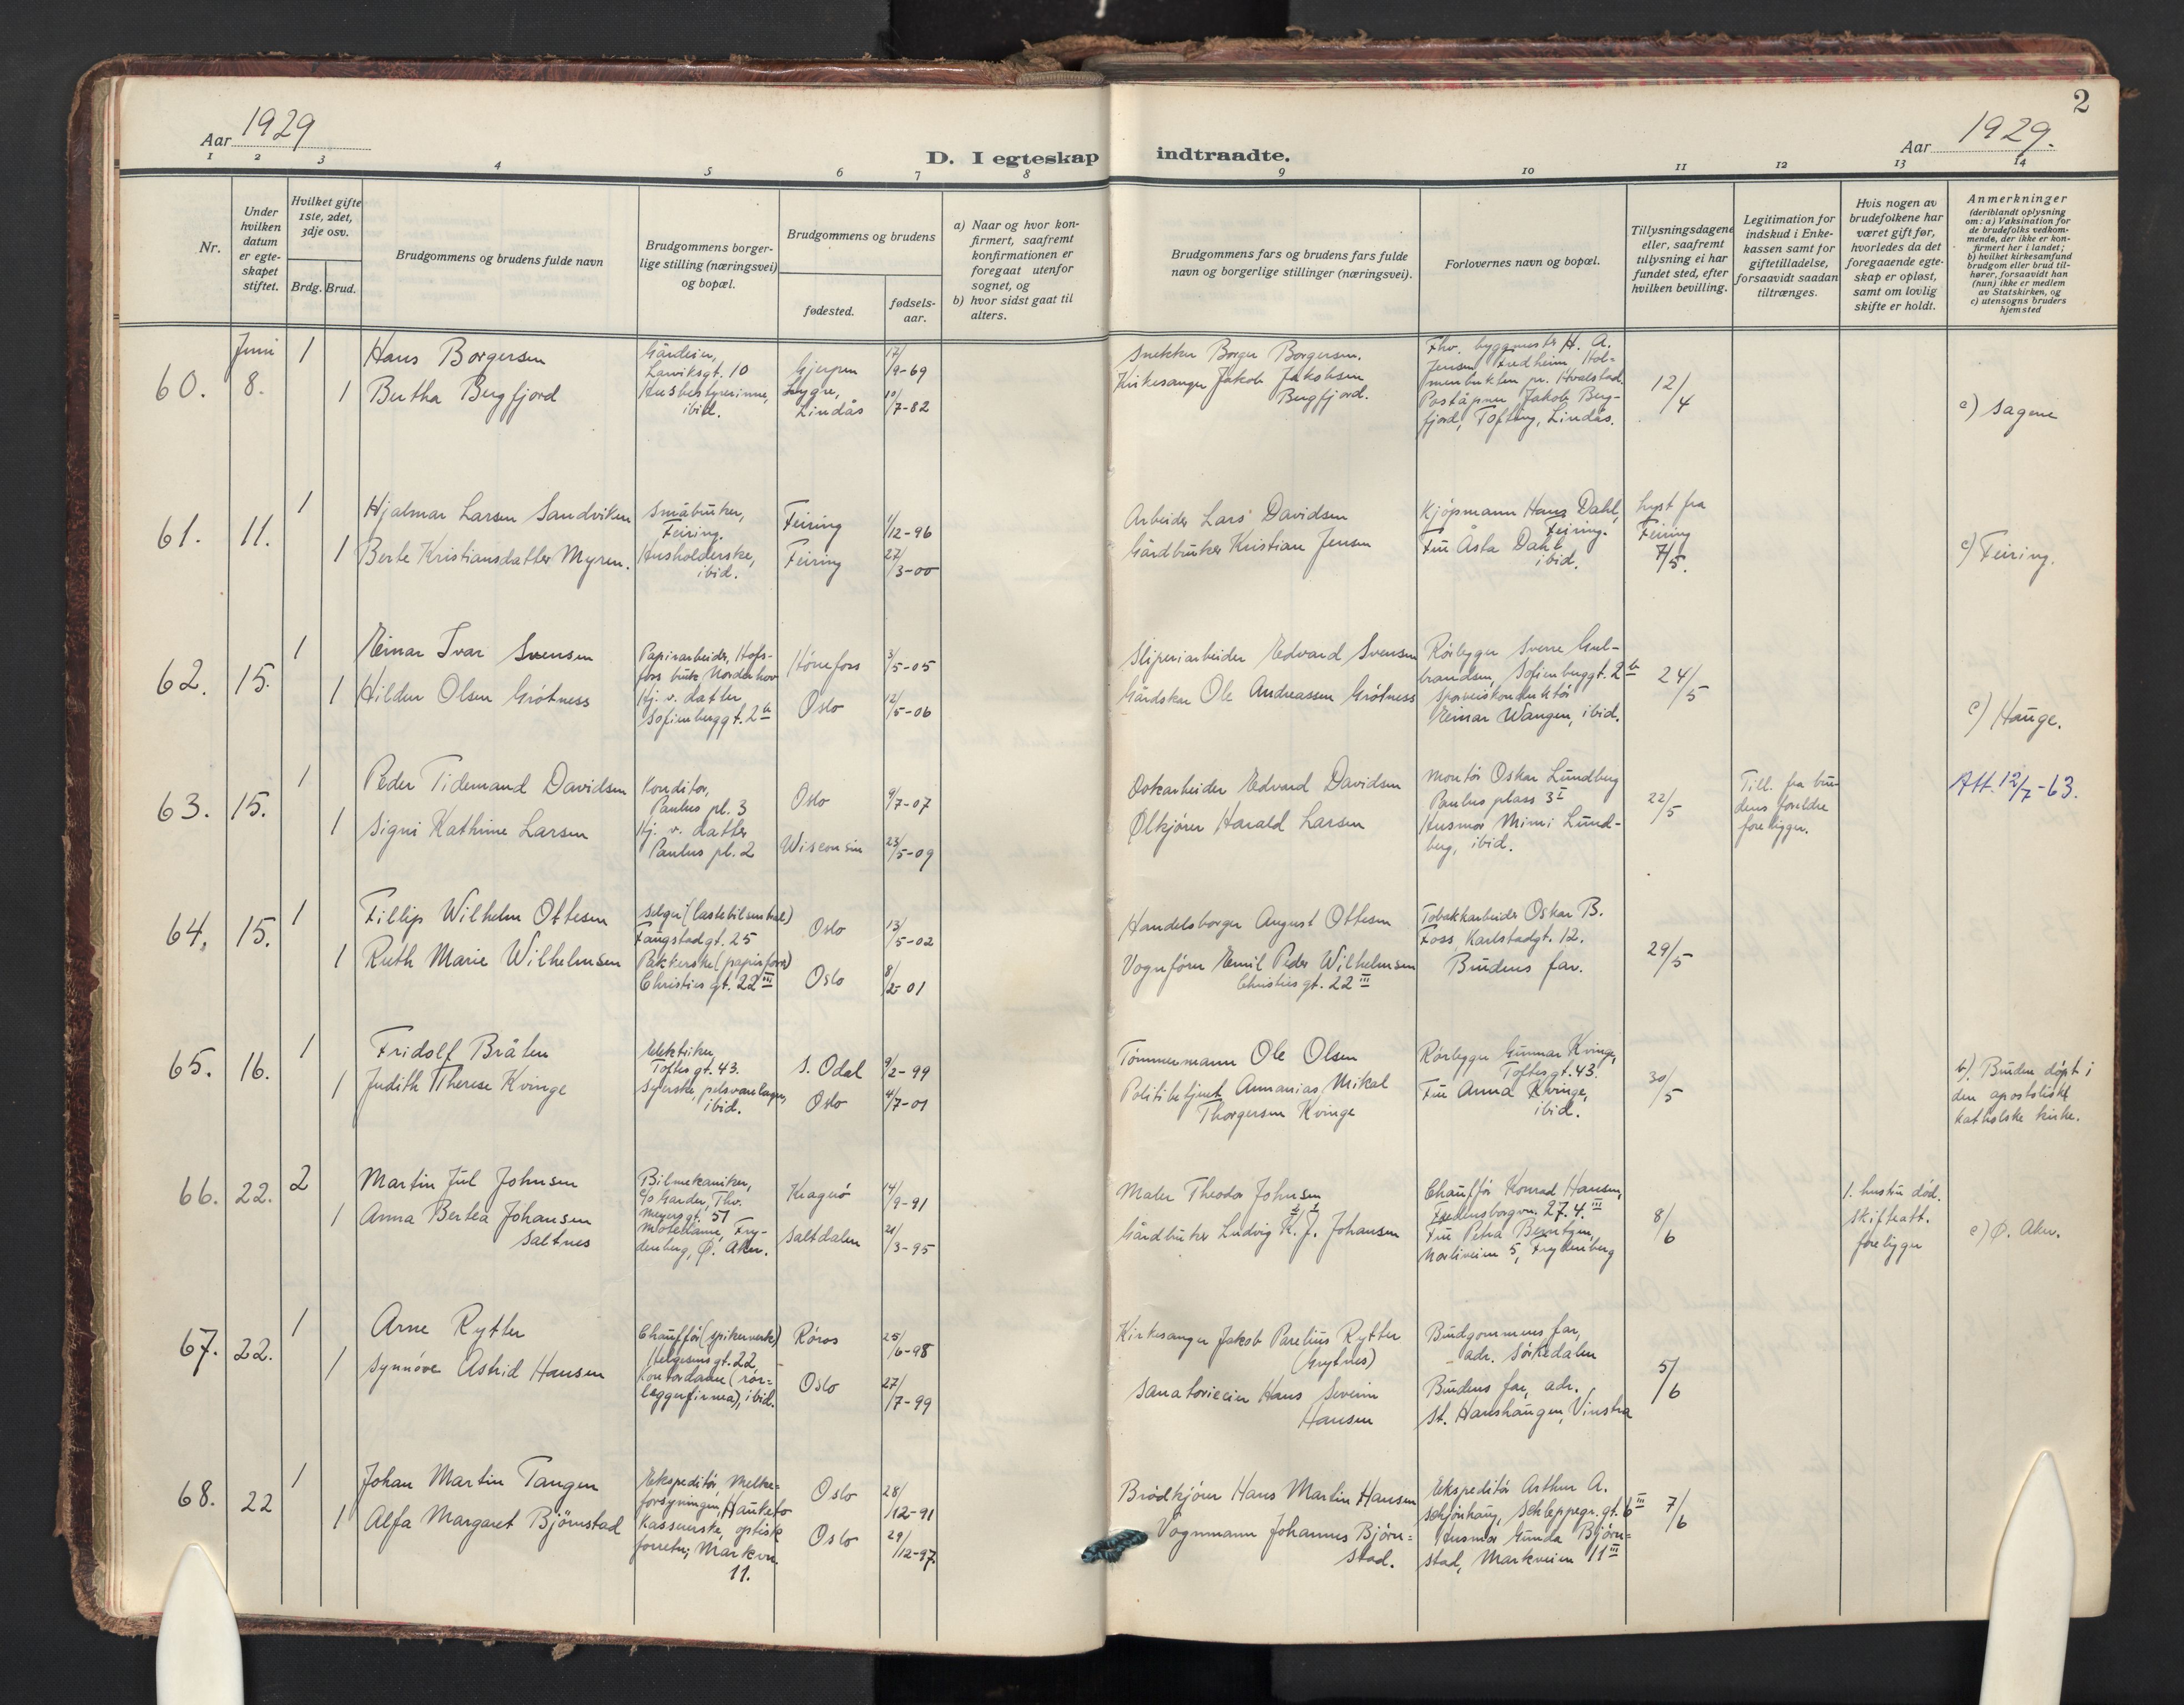 Aar 1929
D. I egteskap indtraadte.
Aar 1929.
2
1 2 3 4 5 6 7 8 9 10 11 12 13 14
Nr.
Under hvilken datum er egteskapet stiftet.
Hvilket gifte 1ste, 2det, 3dje osv.
Brdg. Brud.
Brudgommens og brudens fulde navn
Brudgommens borgerlige stilling (næringsvei) og bopæl.
Brudgommens og brudens
fødested.
fødselsaar.
a) Naar og hvor konfirmert, saafremt konfirmationen er foregaat utenfor sognet, og
b) hvor sidst gaat til alters.
Brudgommens fars og brudens fars fulde navn og borgerlige stillinger (næringsvei).
Forlovernes navn og bopæl.
Tillysningsdagene eller, saafremt tillysning ei har fundet sted, efter hvilken bevilling.
Legitimation for indskud i Enkekassen samt for giftetilladelse, forsaavidt saadan tiltrænges.
Hvis nogen av brudefolkene har været gift før, hvorledes da det foregaaende egteskap er opløst, samt om lovlig skifte er holdt.
Anmerkninger
(deriblandt oplysning om: a) Vaksination for de brudefolks vedkommende, der ikke er konfirmert her i landet; b) hvilket kirkesamfund brudgom eller brud tilhører, forsaavidt han (hun) ikke er medlem av Statskirken, og c) utensogns bruders hjemsted
60. Juni 8.
1 Hans Borgersen
Gårdeier, Larviksgt. 10
Gjerpen 17/9-69
1 Bertha Bergfjord
Husbestyrerinne, ibid.
Lygre, Lindås 10/7-82
Snekker Borger Borgersen.
Kirkesanger Jakob Jakobsen Bergfjord.
Fhv. byggmester H. A. Jensen Fredheim Holmenbukten pr. Hvalstad.
Poståpner Jakob Bergfjord, Tofting, Lindås.
12/4
c) Sagene
61. 11.
1 Hjalmar Larsen Sandviken
Småbruker, Feiring.
Feiring 1/12-96
1 Berte Kristiansdatter Myren.
Husholderske, ibid.
Feiring 27/3-00
Arbeider Lars Davidsen
Gårdbruker Kristian Jensen
Kjøpmann Hans Dahl, Feiring.
Fru Åsta Dahl ibid.
Lyst fra Feiring 7/5.
c) Feiring.
62. 15.
1 Einar Ivar Svensen
Papirarbeider, Hofsfoss bruk Norderhov
Hønefoss 3/5-05
1 Hildur Olsen Grøtness
Hj. v. datter Sofienberggt. 2b
Oslo 12/5-06
Sliperiarbeider Edvard Svensen
Gårdsker Ole Andreassen Grøtness
Rørlegger Sverre Gulbrandsen, Sofienberggt. 2b
Sporveiskonduktør Einar Wangen, ibid.
24/5
c) Hauge.
63. 15.
1 Peder Tidemand Davidsen
Konditor, Paulus pl. 3
Oslo 9/7-07
1 Signi Kathrine Larsen
Hj. v. datter Paulus pl. 2
Wisconsin 23/5-09
Dokarbeider Edvard Davidsen
Ølkjører Harald Larsen
Montør Oskar Lundberg Paulus plass 3I
Husmor Mimi Lundberg, ibid.
22/5
Till. fra brudens foreldre foreligger.
Att. 12/7-63.
64. 15.
1 Fillip Wilhelm Ottesen
Selger (lastebilsentral) Faugstadgt. 25
Oslo 13/5-02
1 Ruth Marie Wilhelmsen
Pakkerske (papirforr.) Christies gt. 22III
Oslo 8/2-01
Handelsborger August Ottesen
Vognfører Emil Peder Wilhelmsen Christies gt. 22III
Tobakkarbeider Oskar B. Foss, Karlstadgt. 12.
Brudens far.
29/5
65. 16.
1 Fridolf Bråten
Elektriker Toftes gt. 43.
S. Odal 9/2-99
1 Judith Therese Kvinge
Syerske, pelsvarelager, ibid.
Oslo 4/7-01
Tømmermann Ole Olsen
Politibetjent Annanias Mikal Thorgersen Kvinge
Rørlegger Gunnar Kvinge, Toftes gt. 43.
Fru Anna Kvinge, ibid.
30/5
b). Bruden døpt i den apostoliske katholske kirke.
66. 22.
2 Martin Jul Johnsen
Bilmekaniker, c/o Garder, Thv. Meyers gt. 51
Kragerø 14/9-91
1 Anna Bertea Johansen Saltnes
Motedame, Frydenberg, Ø. Aker.
Saltdalen 21/3-95
Maler Theodor Johnsen
Gårdbruker Ludvig K. J. Johansen
Chauffør Konrad Hansen, Fredensborgvn. 27. 4.III
Fru Petra Berntzen, Norliveien 5, Frydenberg
8/6
1. hustru død. Skifteatt. foreligger
c) Ø. Aker.
67. 22.
1 Arne Rytter
Chauffør (spikerverk) Helgesens gt. 22
Røros 25/6-98
1 Synnøve Astrid Hansen
Kontordame (rørleggerfirma), ibid.
Oslo 27/7-99
Kirkesanger Jakob Parelius Rytter (Grytnes)
Sanatorieeier Hans Severin Hansen
Brudgommens far, adr. Sørkedalen
Brudens far, adr. St. Hanshaugen, Vinstra
5/6
68. 22
1 Johan Martin Tangen
Ekspeditør, Melkeforsyningen, Hauketo
Oslo 28/12-91
1 Alfa Margaret Bjørnstad
Kassererske, optisk forretn; Markvn. 11.
Oslo 29/12-97.
Brødkjører Hans Martin Hansen
Vognmann Johannes Bjørnstad.
Ekspeditør Arthur A. Schjønhaug, Schleppegr. gt. 6III
Husmor Gunda Bjørnstad, Markveien 11III
7/6